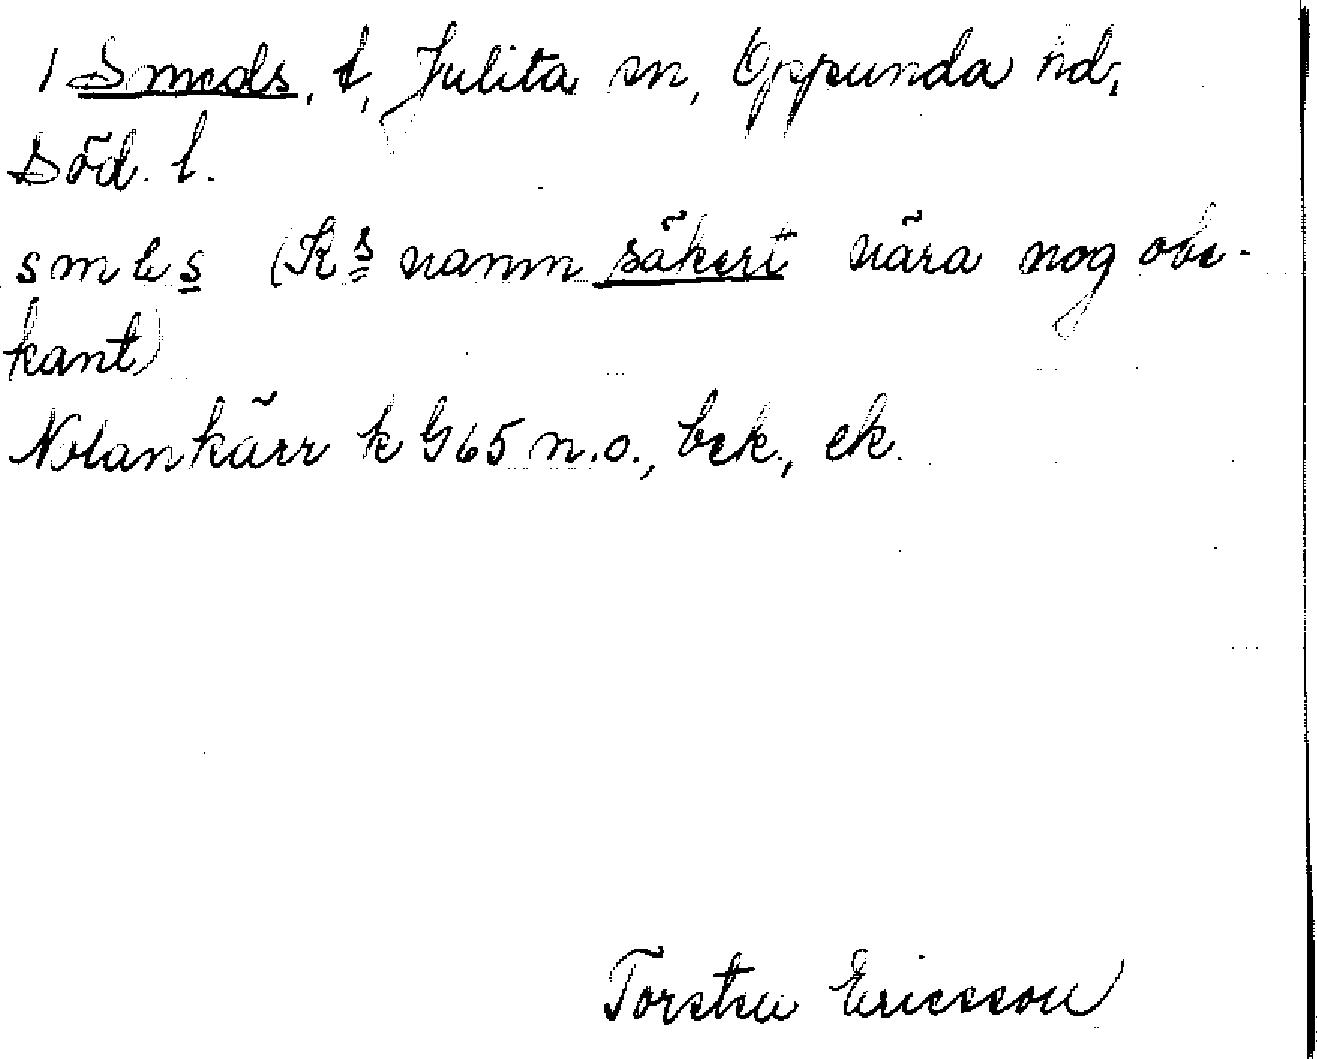 1 Smeds, t, Julita sn, Oppunda hd,
Söd. l.
smes (Ks namn säkert nära nog obe-
kant)
Nolankärr k G65 n.o., bek., ek.
Torsten Ericsson